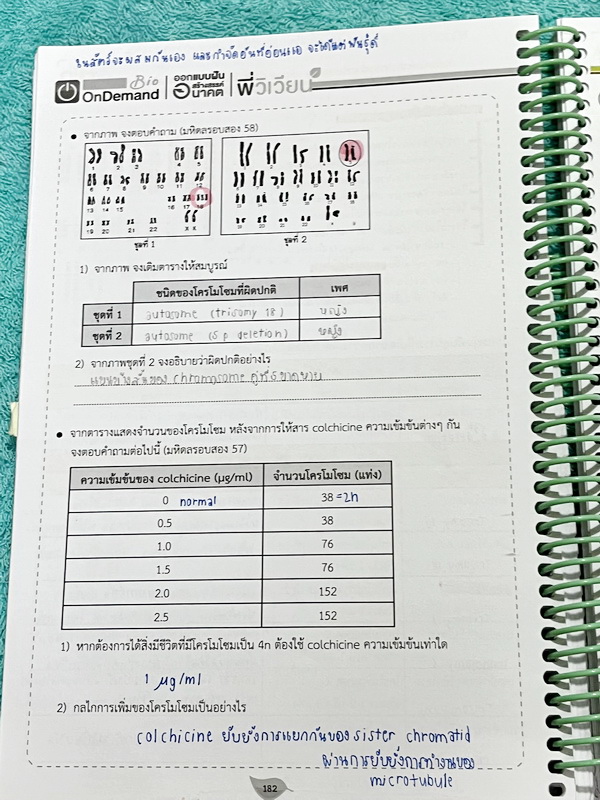 ในสัตว์จะผสมกันเอง และกำจัดอันที่อ่อนแอ จะได้แต่พันธุ์ดี
Bio
OnDemand
ออกแบบฝัน
สร้างสรรค์
อนาคต
พี่วิเวียน
• จากภาพ จงตอบคำถาม (มหิดลรอบสอง 58)
ชุดที่ 1 ชุดที่ 2
1) จากภาพ จงเติมตารางให้สมบูรณ์
ชนิดของโครโมโซมที่ผิดปกติ เพศ
ชุดที่ 1 autosome (trisomy 18) หญิง
ชุดที่ 2 autosome (5 p deletion) หญิง
2) จากภาพชุดที่ 2 จงอธิบายว่าผิดปกติอย่างไร
แขนข้างสั้นของ chromosome คู่ที่ 5 ขาดหาย
• จากตารางแสดงจำนวนของโครโมโซม หลังจากการให้สาร colchicine ความเข้มข้นต่างๆ กัน
จงตอบคำถามต่อไปนี้ (มหิดลรอบสอง 57)
ความเข้มข้นของ colchicine (µg/ml) จำนวนโครโมโซม (แท่ง)
0 normal 38 = 2n
0.5 38
1.0 76
1.5 76
2.0 152
2.5 152
1) หากต้องการได้สิ่งมีชีวิตที่มีโครโมโซมเป็น 4n ต้องใช้ colchicine ความเข้มข้นเท่าใด
1 µg/ml
2) กลไกการเพิ่มของโครโมโซมเป็นอย่างไร
colchicine ยับยั้งการแยกกันของ sister chromatid
ผ่านการยับยั้งการทำงานของ
microtubule
182